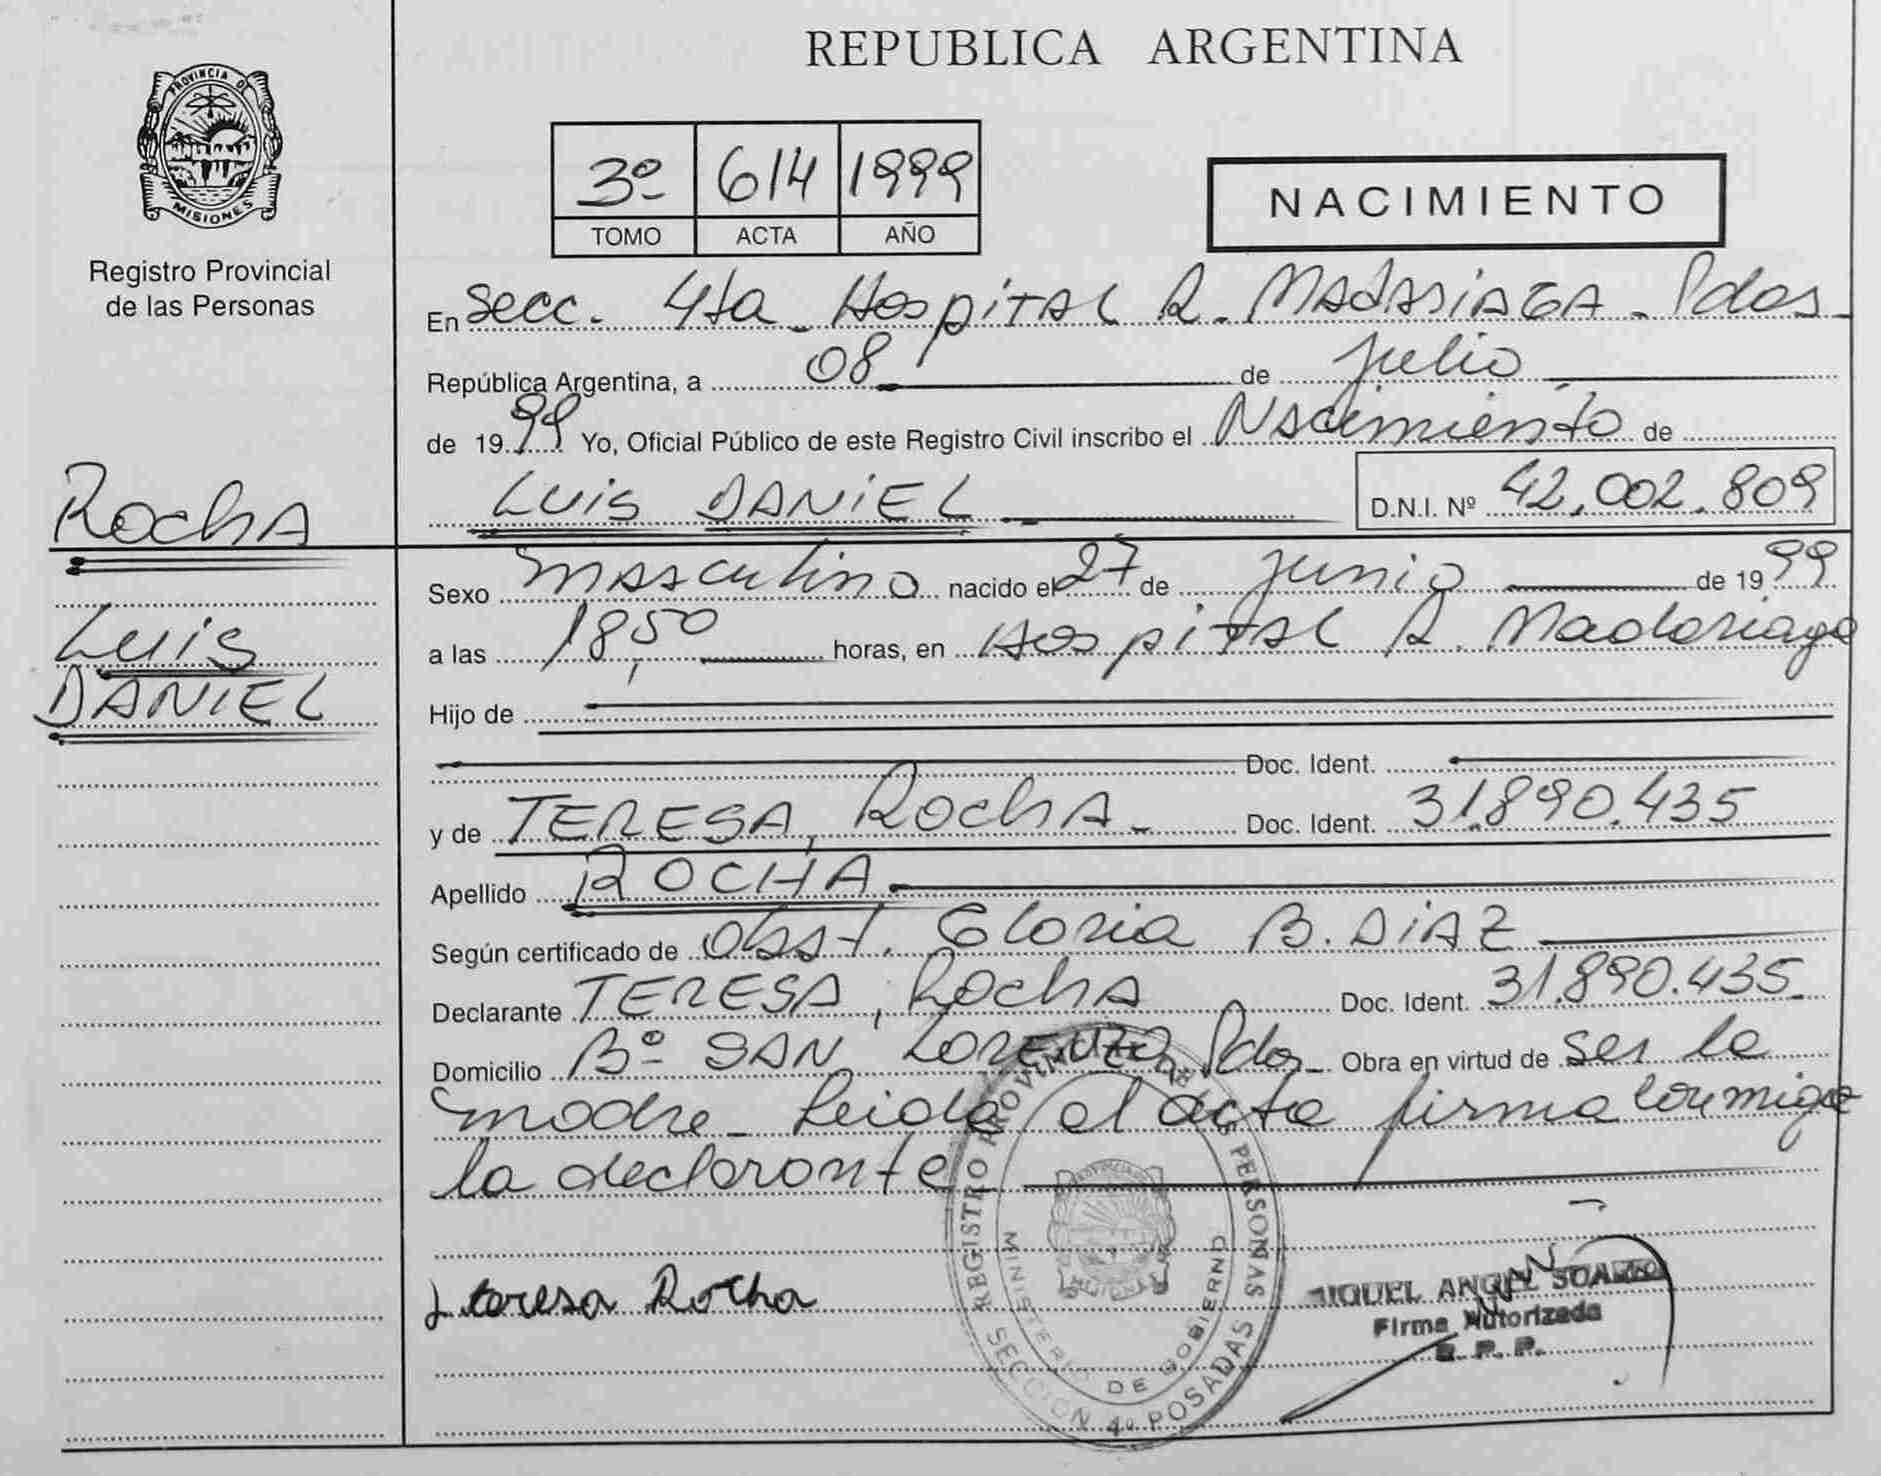 REPUBLICA ARGENTINA
PROVINCIA DE
MISIONES
Registro Provincial
de las Personas
3º 614 1999
TOMO ACTA AÑO
NACIMIENTO
En Secc. 4ta - Hospital R. Madariaga - Pdas -
República Argentina, a 08 de Julio
de 1999 Yo, Oficial Público de este Registro Civil inscribo el Nacimiento de
LUIS DANIEL D.N.I. Nº 42.002.809
Rocha
Luis
DANIEL
Sexo masculino nacido el 27 de Junio de 1999
a las 18,50 horas, en Hospital R. Madariaga
Hijo de
Doc. Ident.
y de TERESA, Rocha - Doc. Ident. 31.890.435
Apellido ROCHA
Según certificado de Obst. Gloria B. DIAZ
Declarante TERESA, Rocha Doc. Ident. 31.890.435
Domicilio Bº SAN LORENZO Pdas - Obra en virtud de ser la
madre - Leida el acta firma conmigo
la declarante
teresa Rocha
REGISTRO PROVINCIAL DE LAS PERSONAS
MINISTERIO DE GOBIERNO
SECCION 4º POSADAS
MIQUEL ANGEL SUAREZ
Firma Autorizada
R. P. P.